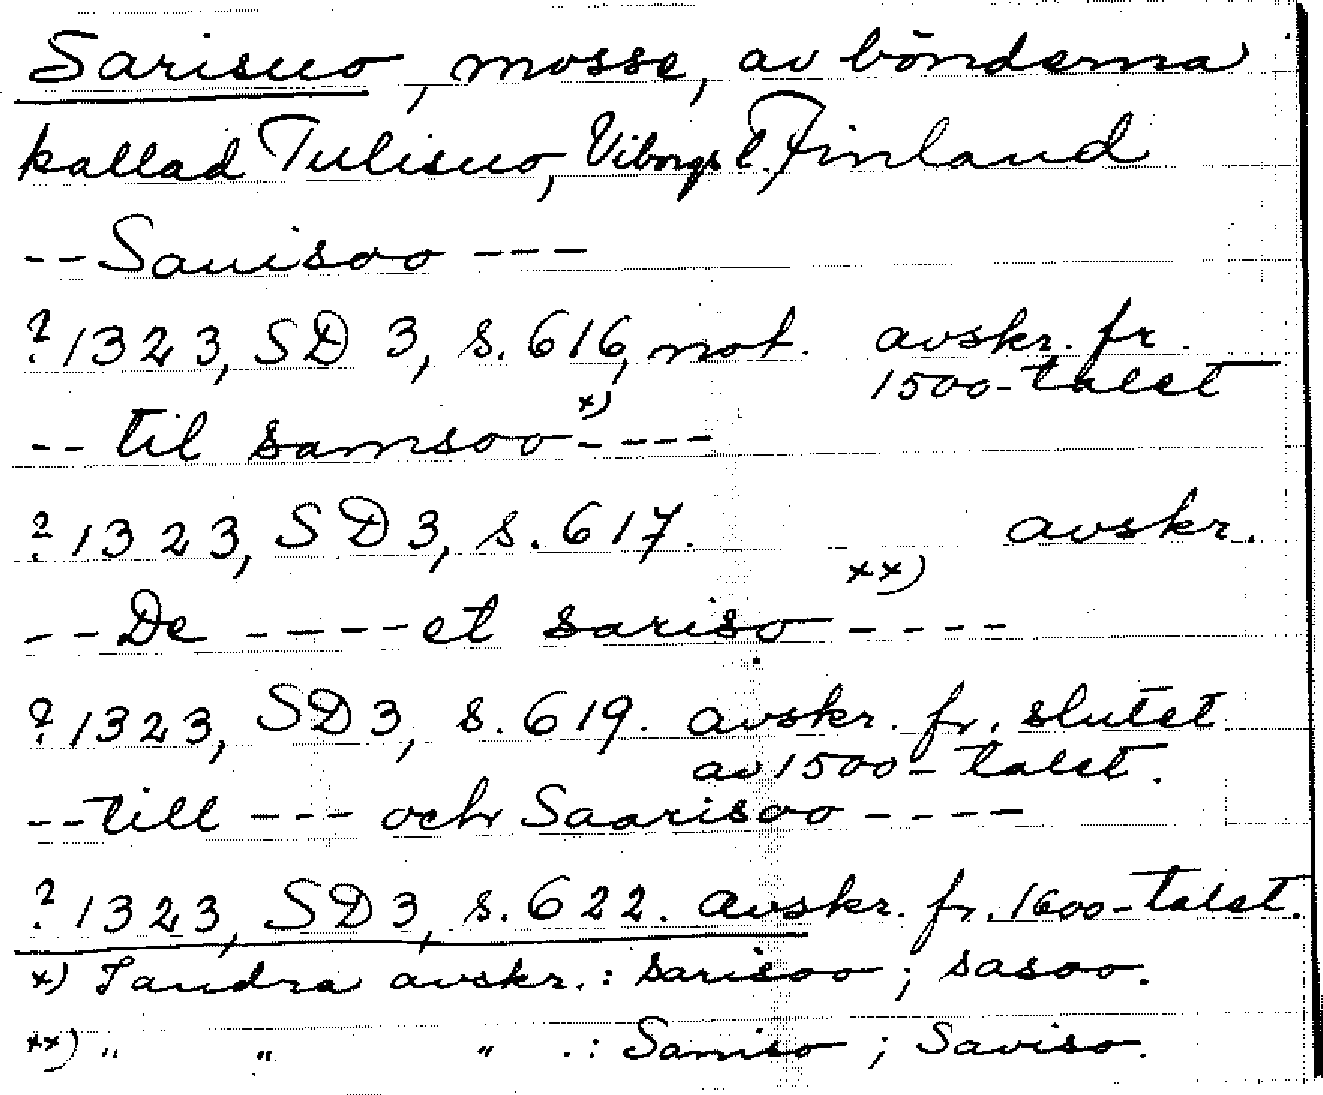 Sarisuo, mosse, av bönderna
kallad Tulisuo, Viborgs l. Finland
-- Sauisoo ---
? 1323, SD 3, s. 616, not. avskr. fr.
1500-talet
-- til samsoo x) ----
? 1323, SD 3, s. 617. avskr.
-- De ---- et sariso xx) ----
? 1323, SD 3, s. 619. avskr. fr. slutet
av 1500-talet.
-- till --- och Saarisoo ----
? 1323, SD 3, s. 622. avskr. fr. 1600-talet.
x) I andra avskr.: sarisoo ; sasoo.
xx) " " " .: Samiso ; Saviso.